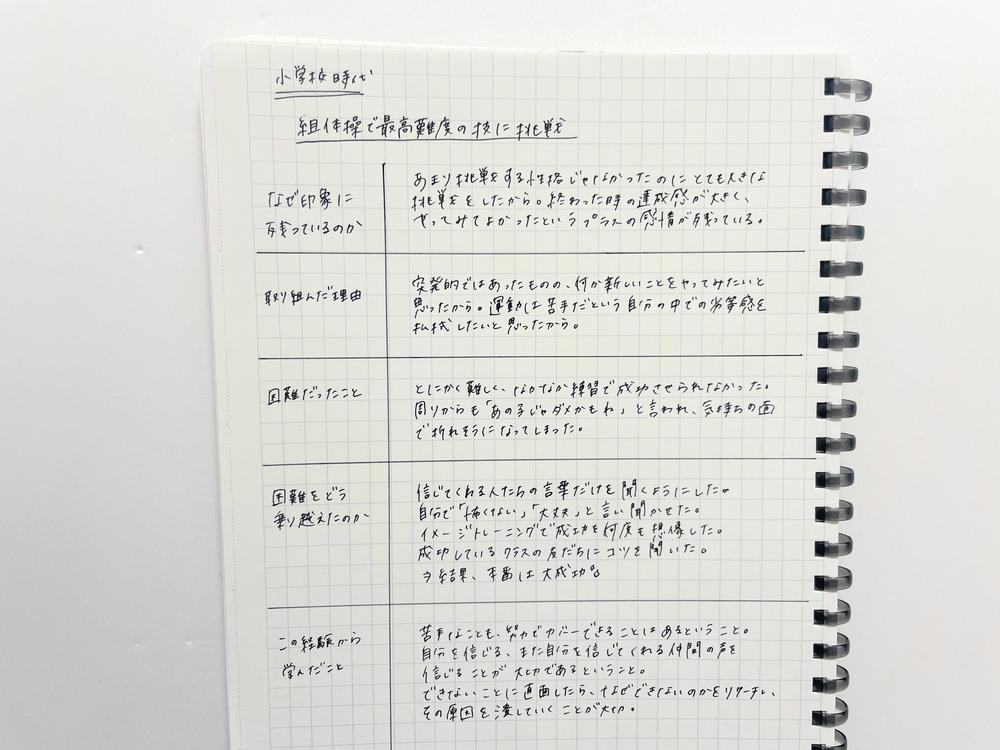 小学校時代
組体操で最高難度の技に挑戦
なぜ印象に
残っているのか
あまり挑戦をする性格じゃなかったのにとても大きな
挑戦をしたから。終わった時の達成感が大きく、
やってみてよかったというプラスの感情が残っている。
取り組んだ理由
突発的ではあったものの、何か新しいことをやってみたいと
思ったから。運動は苦手だという自分の中での劣等感を
払拭したいと思ったから。
困難だったこと
とにかく難しく、なかなか練習で成功させられなかった。
周りからも「あの子じゃダメかもね」と言われ、気持ちの面
で折れそうになってしまった。
困難をどう
乗り越えたのか
信じてくれる人たちの言葉だけを聞くようにした。
自分で「怖くない」「大丈夫」と言い聞かせた。
イメージトレーニングで成功を何度も想像した。
成功しているクラスの友だちにコツを聞いた。
→結果、本番は大成功。
この経験から
学んだこと
苦手なことも、努力でカバーできることはあるということ。
自分を信じる、また自分を信じてくれる仲間の声を
信じることが大切であるということ。
できないことに直面したら、なぜできないのかをリサーチし、
その原因を潰していくことが大切。